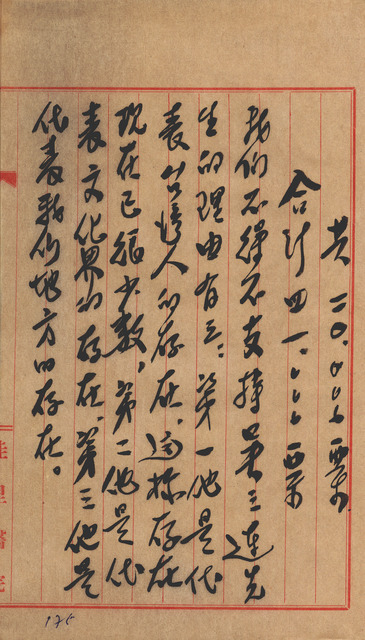 共 二〇.〇〇〇票
合計四一.〇〇〇票
我們不得不支持吳三連先
生的理由有三：第一他是代
表台灣人的存在，這樣存在
現在已經少數，第二他是代
表文化界的存在，第三他是
代表我們地方的存在。
佳里醫院
175